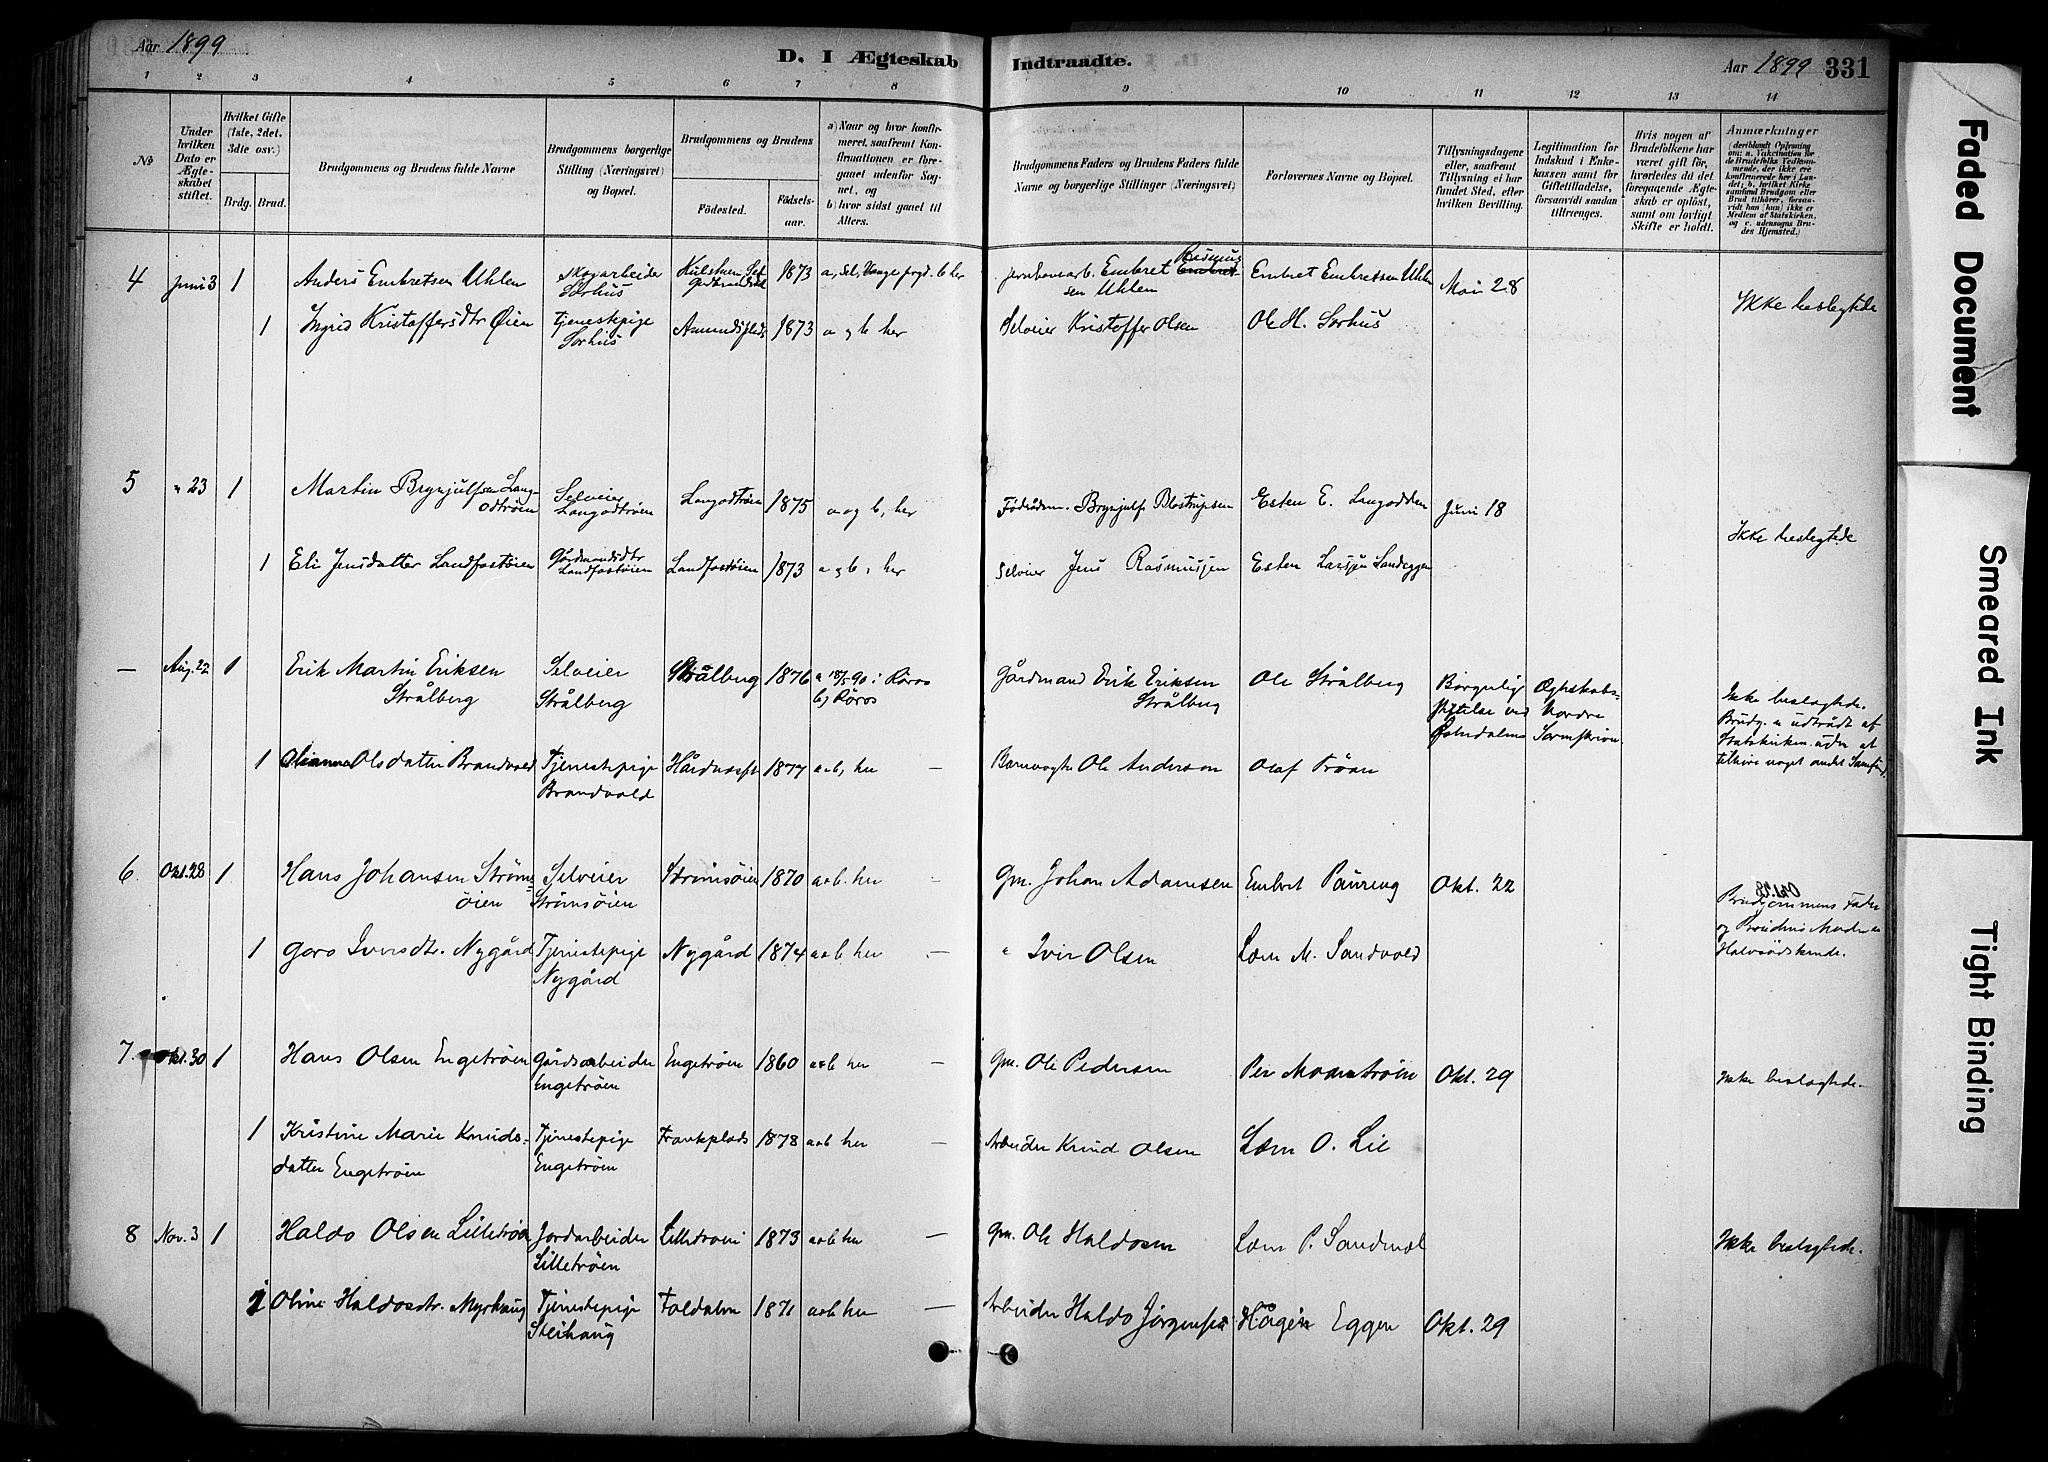 Aar 1899
D. I Ægteskab Indtraadte.
Aar 1899 331
1 2 3 4 5 6 7 8 9 10 11 12 13 14
No
Under hvilken Dato er Ægteskabet stiftet.
Hvilket Gifte (1ste, 2det, 3die osv.)
Brdg. Brud.
Brudgommens og Brudens fulde Navne
Brudgommens borgerlige Stilling (Næringsvei) og Bopæl.
Brudgommens og Brudens
Fødested.
Fødselsaar.
a) Naar og hvor konfirmeret, saafremt Konfirmationen er foregaaet udenfor Sognet, og
b) hvor sidst gaaet til Alters.
Brudgommens Faders og Brudens Faders fulde Navne og borgerlige Stillinger (Næringsvei)
Forlovernes Navne og Bopæl.
Tillysningsdagene eller, saafremt Tillysning ei har fundet Sted, efter hvilken Bevilling.
Legitimation for Indskud i Enkekassen samt for Giftetilladelse, forsaavidt saadan tiltrænges.
Hvis nogen af Brudefolkene har været gift før, hvorledes da det foregaaende Ægteskab er opløst, samt om lovligt Skifte er holdt.
Anmærkninger
4 Juni 3 1 Anders Embretsen Uhlen
skogarbeide Sørhus
1873
Embret Rasmussen Uhlen
Embret Embretsen Uhlen
Mai 28
Ikke beslegtede
1 Ingrid Kristoffersdtr Øien
Tjenestepige Sørhus
1873 a og b her
Selveier Kristoffer Olsen
Ole H. Sørhus
5 " 23 1 Martin Brynjulfsen Langodtrøen
Selveier Langodtrøen
Langodtrøen 1875 a og b, her
Brynjulf
Esten E. Langodden
Juni 18
Ikke beslegtede
1 Eli Jensdatter Landfastøien
Gårdmandsdtr Landfastøien
Landfastøien 1873 a og b, her
Selveier Jens Rasmussen
Esten Larsen Sandeggen
— Aug. 22 1 Erik Martin Eriksen Strålberg
Selveier Strålberg
Strålberg 1876 a 18/5 90 i Røros b) Røros
Gårdmand Erik Eriksen Strålberg
Ole Strålberg
Ikke beslegtede.
Brudg. er udtrådt af Statskirken
1 Olianna Olsdatter Brandvold
Tjenestepige Brandvold
1877 a&b, her —
Ole Anderson
Olaf Trøan
6. Okt. 28 1 Hans Johansen Strømsøien
Selveier Strømsøien
Strømsøien 1870 a&b. her —
Gm. Johan Adamsen
Embret Paureng
Okt. 22
Brudgommens Fader og Brudens Moder er Halvsødskende.
1 Goro Iversdtr. Nygård
Tjenestepige Nygård
Nygård 1874 a&b her —
" Iver Olsen
Læm M. Sandvold
7. Okt. 30 1 Hans Olsen Engetrøen
Gårdsarbeider Engetrøen
Engetrøen 1860 a&b her —
Gm. Ole Pedersen
Per Moanstrøen
Okt. 29
Ikke beslegtede.
1 Kristine Marie Knudsdatter Engetrøen
Tjenestepige Engetrøen
Frankplads 1878 a&b her —
Arbeider Knud Olsen
Læm O. Lie
8 Nov. 3 1 Haldo Olsen Lilletrøen
Jordarbeider Lilletrøen
Lilletrøen 1873 a&b her —
Gm. Ole Haldosen
Læm P. Sandmæl
Ikke beslegtede.
1 Oline Haldosdtr. Myrhaug
Tjenestepige Steihaug
Foldalen 1871 a&b her —
Arbeider Haldo Jørgensen
Hågen Eggen
Okt. 29
Faded Document
Smeared Ink
Tight Binding